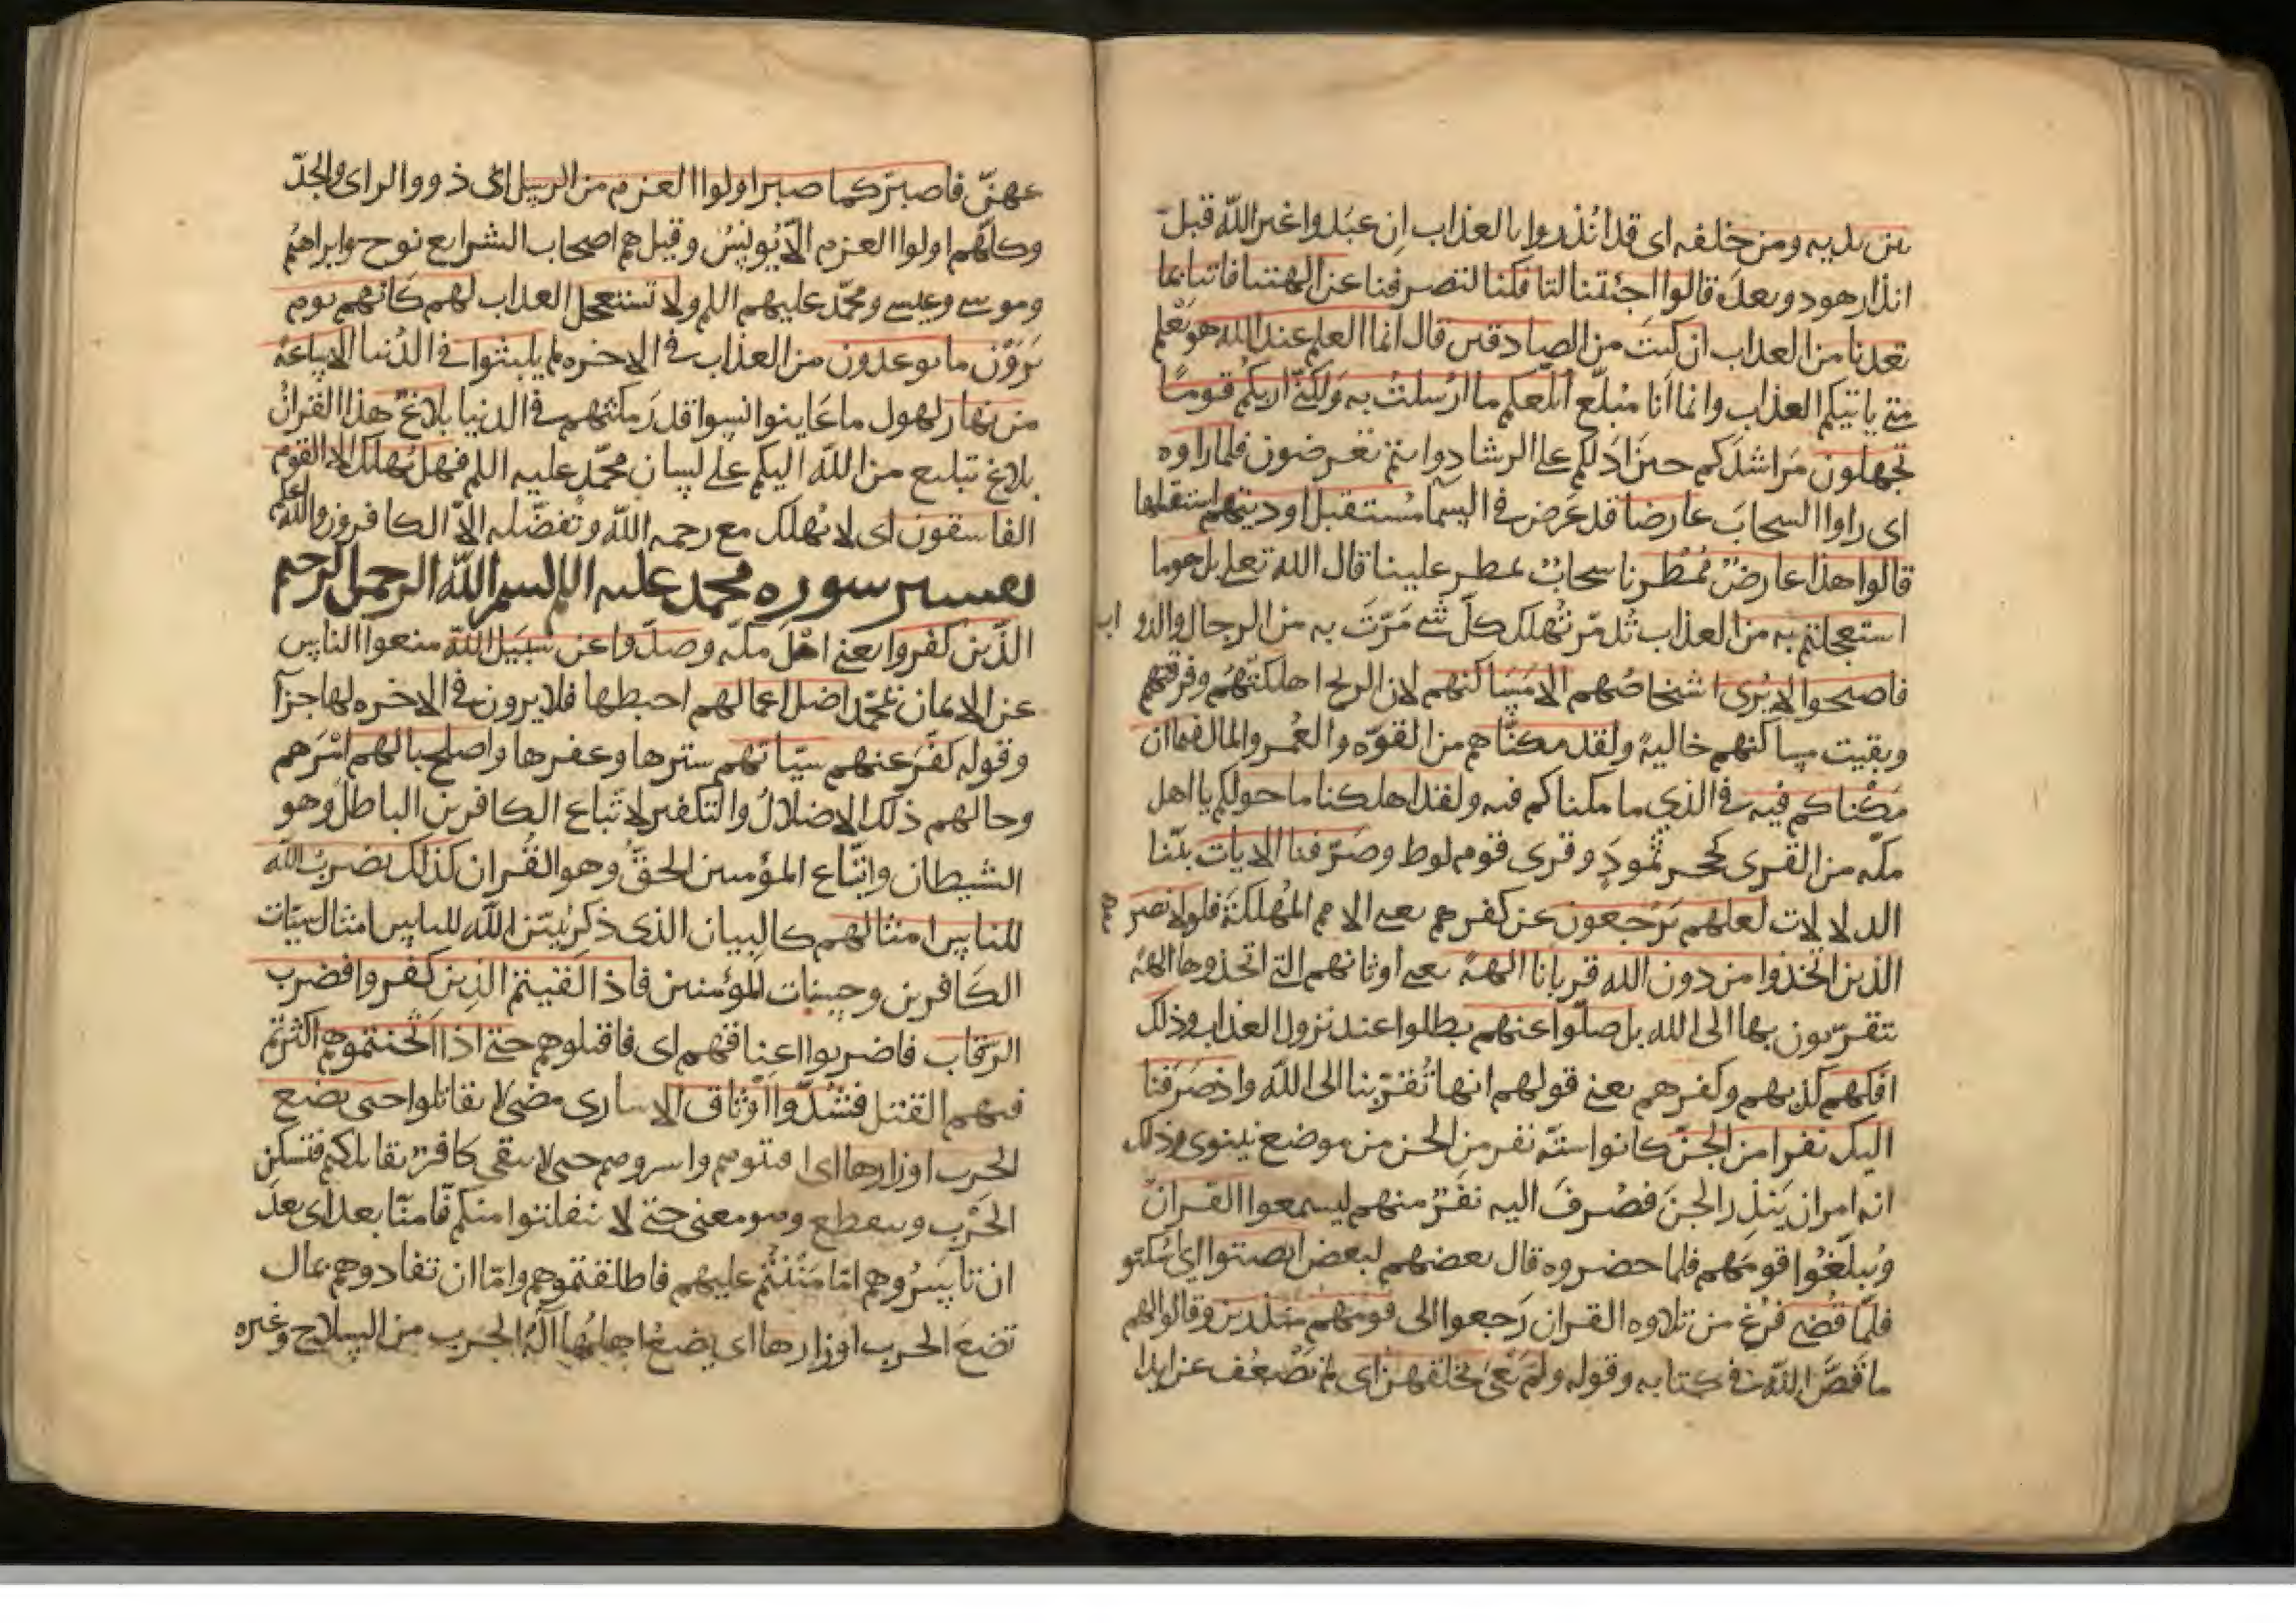 بين يديه ومن خلفه اى قد انذروا بالعذاب ان عبدوا غير الله قبل
انذار هود وبعده قالوا اجئتنا لتافكنا لتصرفنا عن الهتنا فاتنا بما
تعدنا من العذاب ان كنت من الصادقين قال انما العلم عند الله هو يعلم
متى ياتيكم العذاب وانما انا مبلغ ابلغكم ما ارسلت به ولكنى اريكم قوما
تجهلون مراشدكم حين ادلكم على الرشاد وانتم تعرضون فلما راوه
اى راوا السحاب عارضا قد عرض فى السما مستقبل اوديتهم
قالوا هذا عارض ممطرنا سحاب ممطر علينا قال الله تعلى بل هو ما
استعجلتم به من العذاب تدمر تهلك كل شى مرت به من الرجال والدواب
فاصبحوا لا يرى اشخاصهم الا مساكنهم لان الريح اهلكتهم وفرقتهم
وبقيت مساكنهم خالية ولقد مكناهم من القوه والعمر والمال فيما ان
مكناكم فيه فى الذى ما مكناكم فيه ولقد اهلكنا ما حولكم يا اهل
مكه من القرى كحجر ثمود وقرى قوم لوط وصرفنا الايات بينا
الدلالات لعلهم يرجعون عن كفرهم يعنى الامم المهلكة فلولا نصرهم
الذين اتخذوا من دون الله قربانا الهة يعنى اوثانهم التى اتخذوها الهة
يتقربون بها الى الله بل ضلوا عنهم بطلوا عند نزول العذاب وذلك
افكهم كذبهم وكفرهم يعنى قولهم انها تقربنا الى الله واذ صرفنا
اليك نفرا من الجن كانوا ستة نفر من الجن من موضع نينوى وذلك
انه امر ان ينذر الجن فصرف اليه نفر منهم ليسمعوا القران
ويبلغوا قومهم فلما حضروه قال بعضهم لبعض انصتوا اى سكتو
فلما قضى فرغ من تلاوه القران رجعوا الى قومهم منذرين وقالوا لهم
ما قص الله فى كتابه وقوله ولم يعى بخلقهن اى لم يضعف عن ابدا
عهن فاصبر كما صبر اولوا العزم من الرسل اى ذووا الراى والجد
وكلهم اولوا العزم الا يونس وقيل هم اصحاب الشرايع نوح وابراهيم
وموسى وعيسى ومحمد عليهم السلم ولا تستعجل العذاب لهم كانهم يوم
يرون ما يوعدون من العذاب فى الاخره لم يلبثوا فى الدنيا الا ساعة
من نهار لهول ما عاينوا نسوا قدر مكثهم فى الدنيا بلاغ هذا القران
بلاغ تبليغ من الله اليكم على لسان محمد عليه السلم فهل يهلك الا القوم
الفاسقون اى لا يهلك مع رحمه الله وتفضله الا الكافرون والله اعلم
تفسير سوره محمد عليه السلم بسم الله الرحمن الرحيم
الذين كفروا يعنى اهل مكه وصدوا عن سبيل الله منعوا الناس
عن الايمان بمحمد اضل اعمالهم احبطها فلا يرون فى الاخره لها جزآ
وقوله كفر عنهم سياتهم سترها وغفرها واصلح بالهم امرهم
وحالهم ذلك الاضلال والتكفير لاتباع الكافرين الباطل وهو
الشيطان واتباع المؤمنين الحق وهو القران كذلك يضرب الله
للناس امثالهم كالبيان الذى ذكر يبين الله للناس امثال سيات
الكافرين وحسنات المؤمنين فاذا لقيتم الذين كفروا فضرب
الرقاب فاضربوا اعناقهم اى فاقتلوهم حتى اذا اثخنتموهم اكثرتم
فيهم القتل فشدوا وثاق الاسارى حتى لا يقاتلوا حتى يضع
الحرب اوزارها اى اقتلوهم واسروهم حتى لا يبقى كافر يقاتلكم فتسكن
الحرب وينقطع وهو معنى حتى لا ينفلتوا منكم فامنا بعد اى بعد
ان تأسروهم اما مننتم عليهم فاطلقتموهم واما ان تفادوهم بمال
تضع الحرب اوزارها اى يضع اهلها آلة الحرب من السلاح وغيره